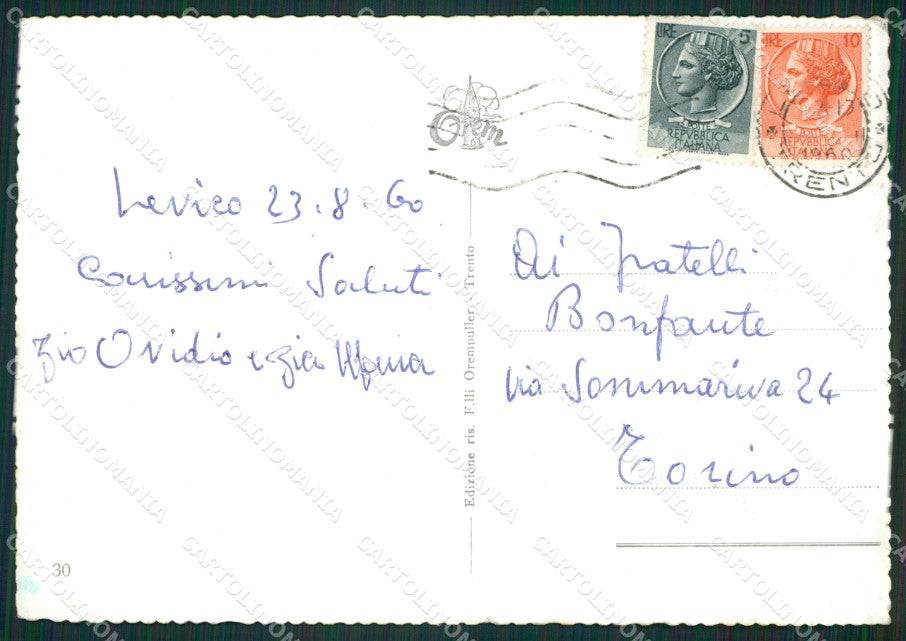 LIRE 5
POSTE
REPVBBLICA
ITALIANA
LIRE 10
POSTE
REPVBBLICA
13
1960
TRENTO
Orem
Levico 23.8.60
Carissimi Saluti
zio Ovidio e zia
Ai Fratelli
Bonfante
Via Sommariva 24
Torino
Edizione ris. F.lli Orempuller, Trento
30
CARTOLINOMANIA